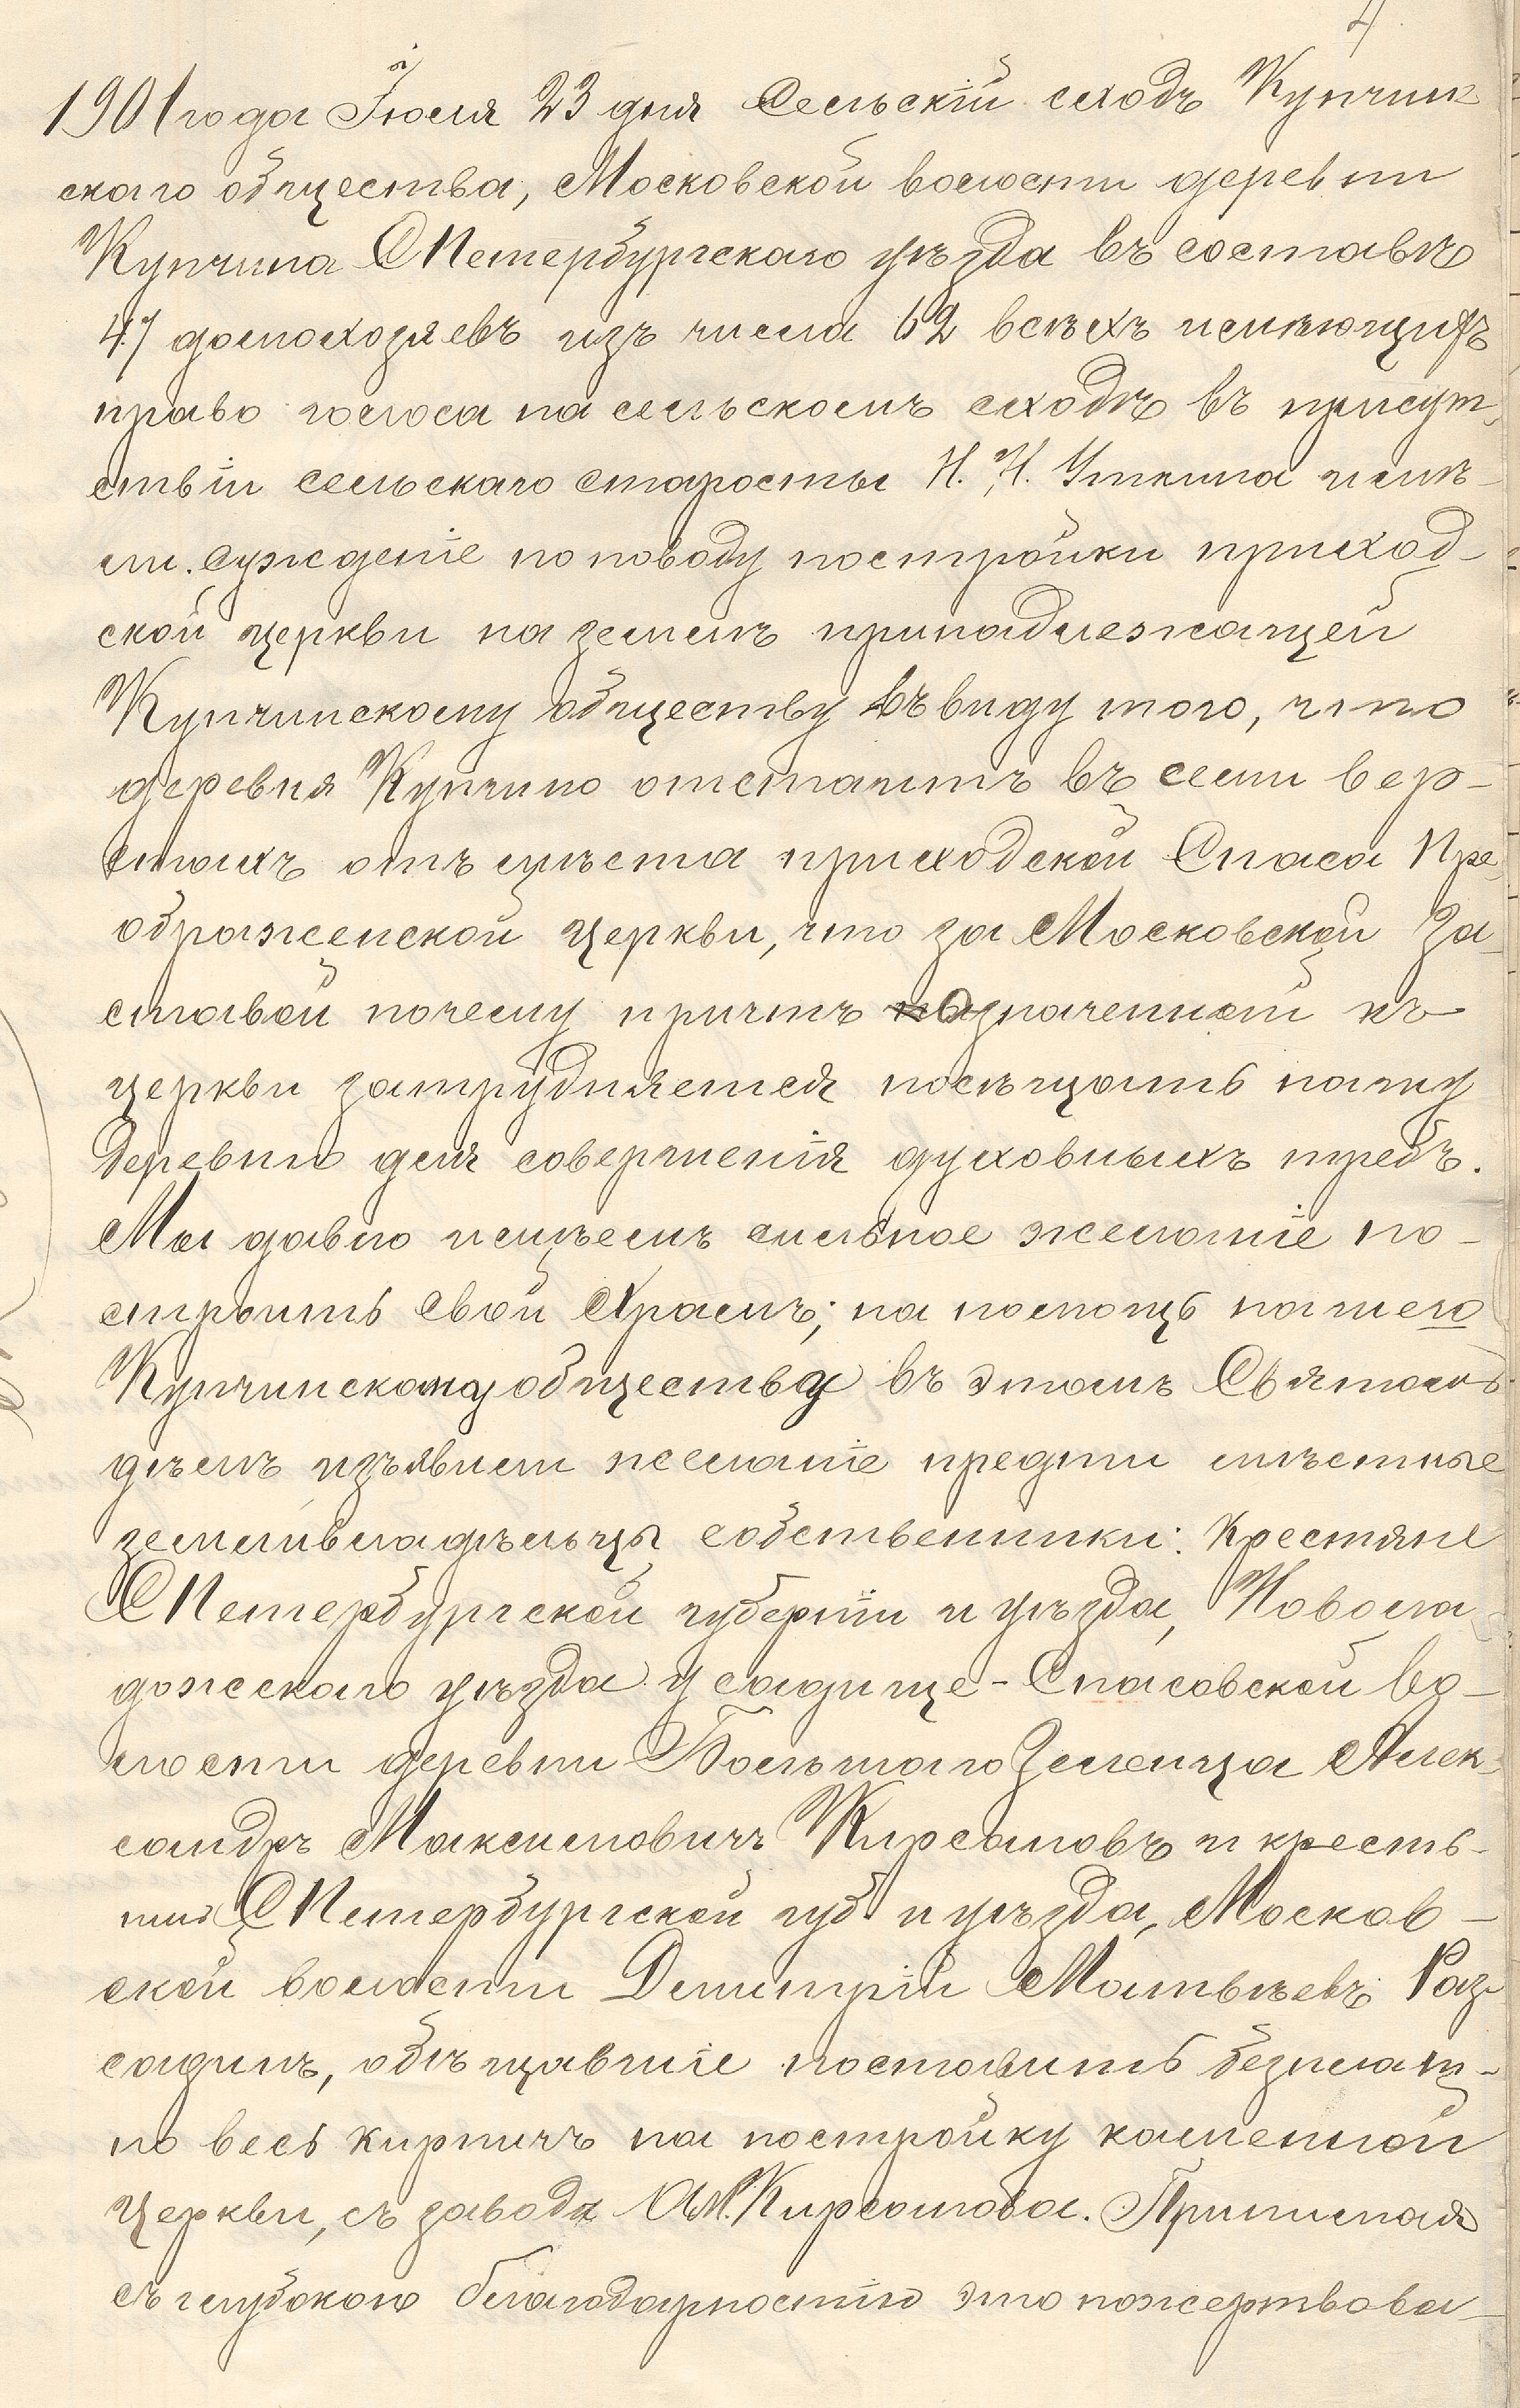 1901 года Іюля 23 дня Сельскій сходъ Купчин
скаго общества, Московской волости деревни
Купчина СПетербургскаго уѣзда въ составѣ
47 домохозяевъ изъ числа 62 всѣхъ имѣющихъ
право голоса на сельскомъ сходѣ въ присут-
ствіи сельскаго старосты Н. Н. Уткина имѣ-
ли сужденіе по поводу постройки приход-
ской церкви на землѣ принадлежащей
Купчинскому обществу въ виду того, что
деревня Купчино отстаитъ въ семи вер-
стахъ отъ мѣста приходской Спаса Пре-
ображенской церкви, что за Московской За-
ставой почему причтъ означенной къ
церкви затрудняется посѣщать нашу
деревню для совершенія духовныхъ требъ.
Мы давно имѣемъ сильное желаніе по-
строить свой Храмъ; на помощь нашего
Купчинскому обществу въ этомъ Святомъ
дѣлѣ изъявили желаніе предти мѣстные
землевладѣльцы собственники: Крестяне
СПетербургской губерніи и уѣзда, Новола
дожскаго уѣзда Усадище-Спасовской во-
лости деревни Большаго Зеленца Алек-
сандръ Максимовичъ Кирсановъ и кресть-
нинъ СПетербургской губ. и уѣзда, Москов-
ской волости Димитрій Матвѣевъ Раз-
садинъ, обѣщавшіе поставить безплат-
но весь кирпичъ на постройку каменной
церкви, съ завода А.М. Кирсанова. Принимая
съ глубокою благодарностію это пожертвова-